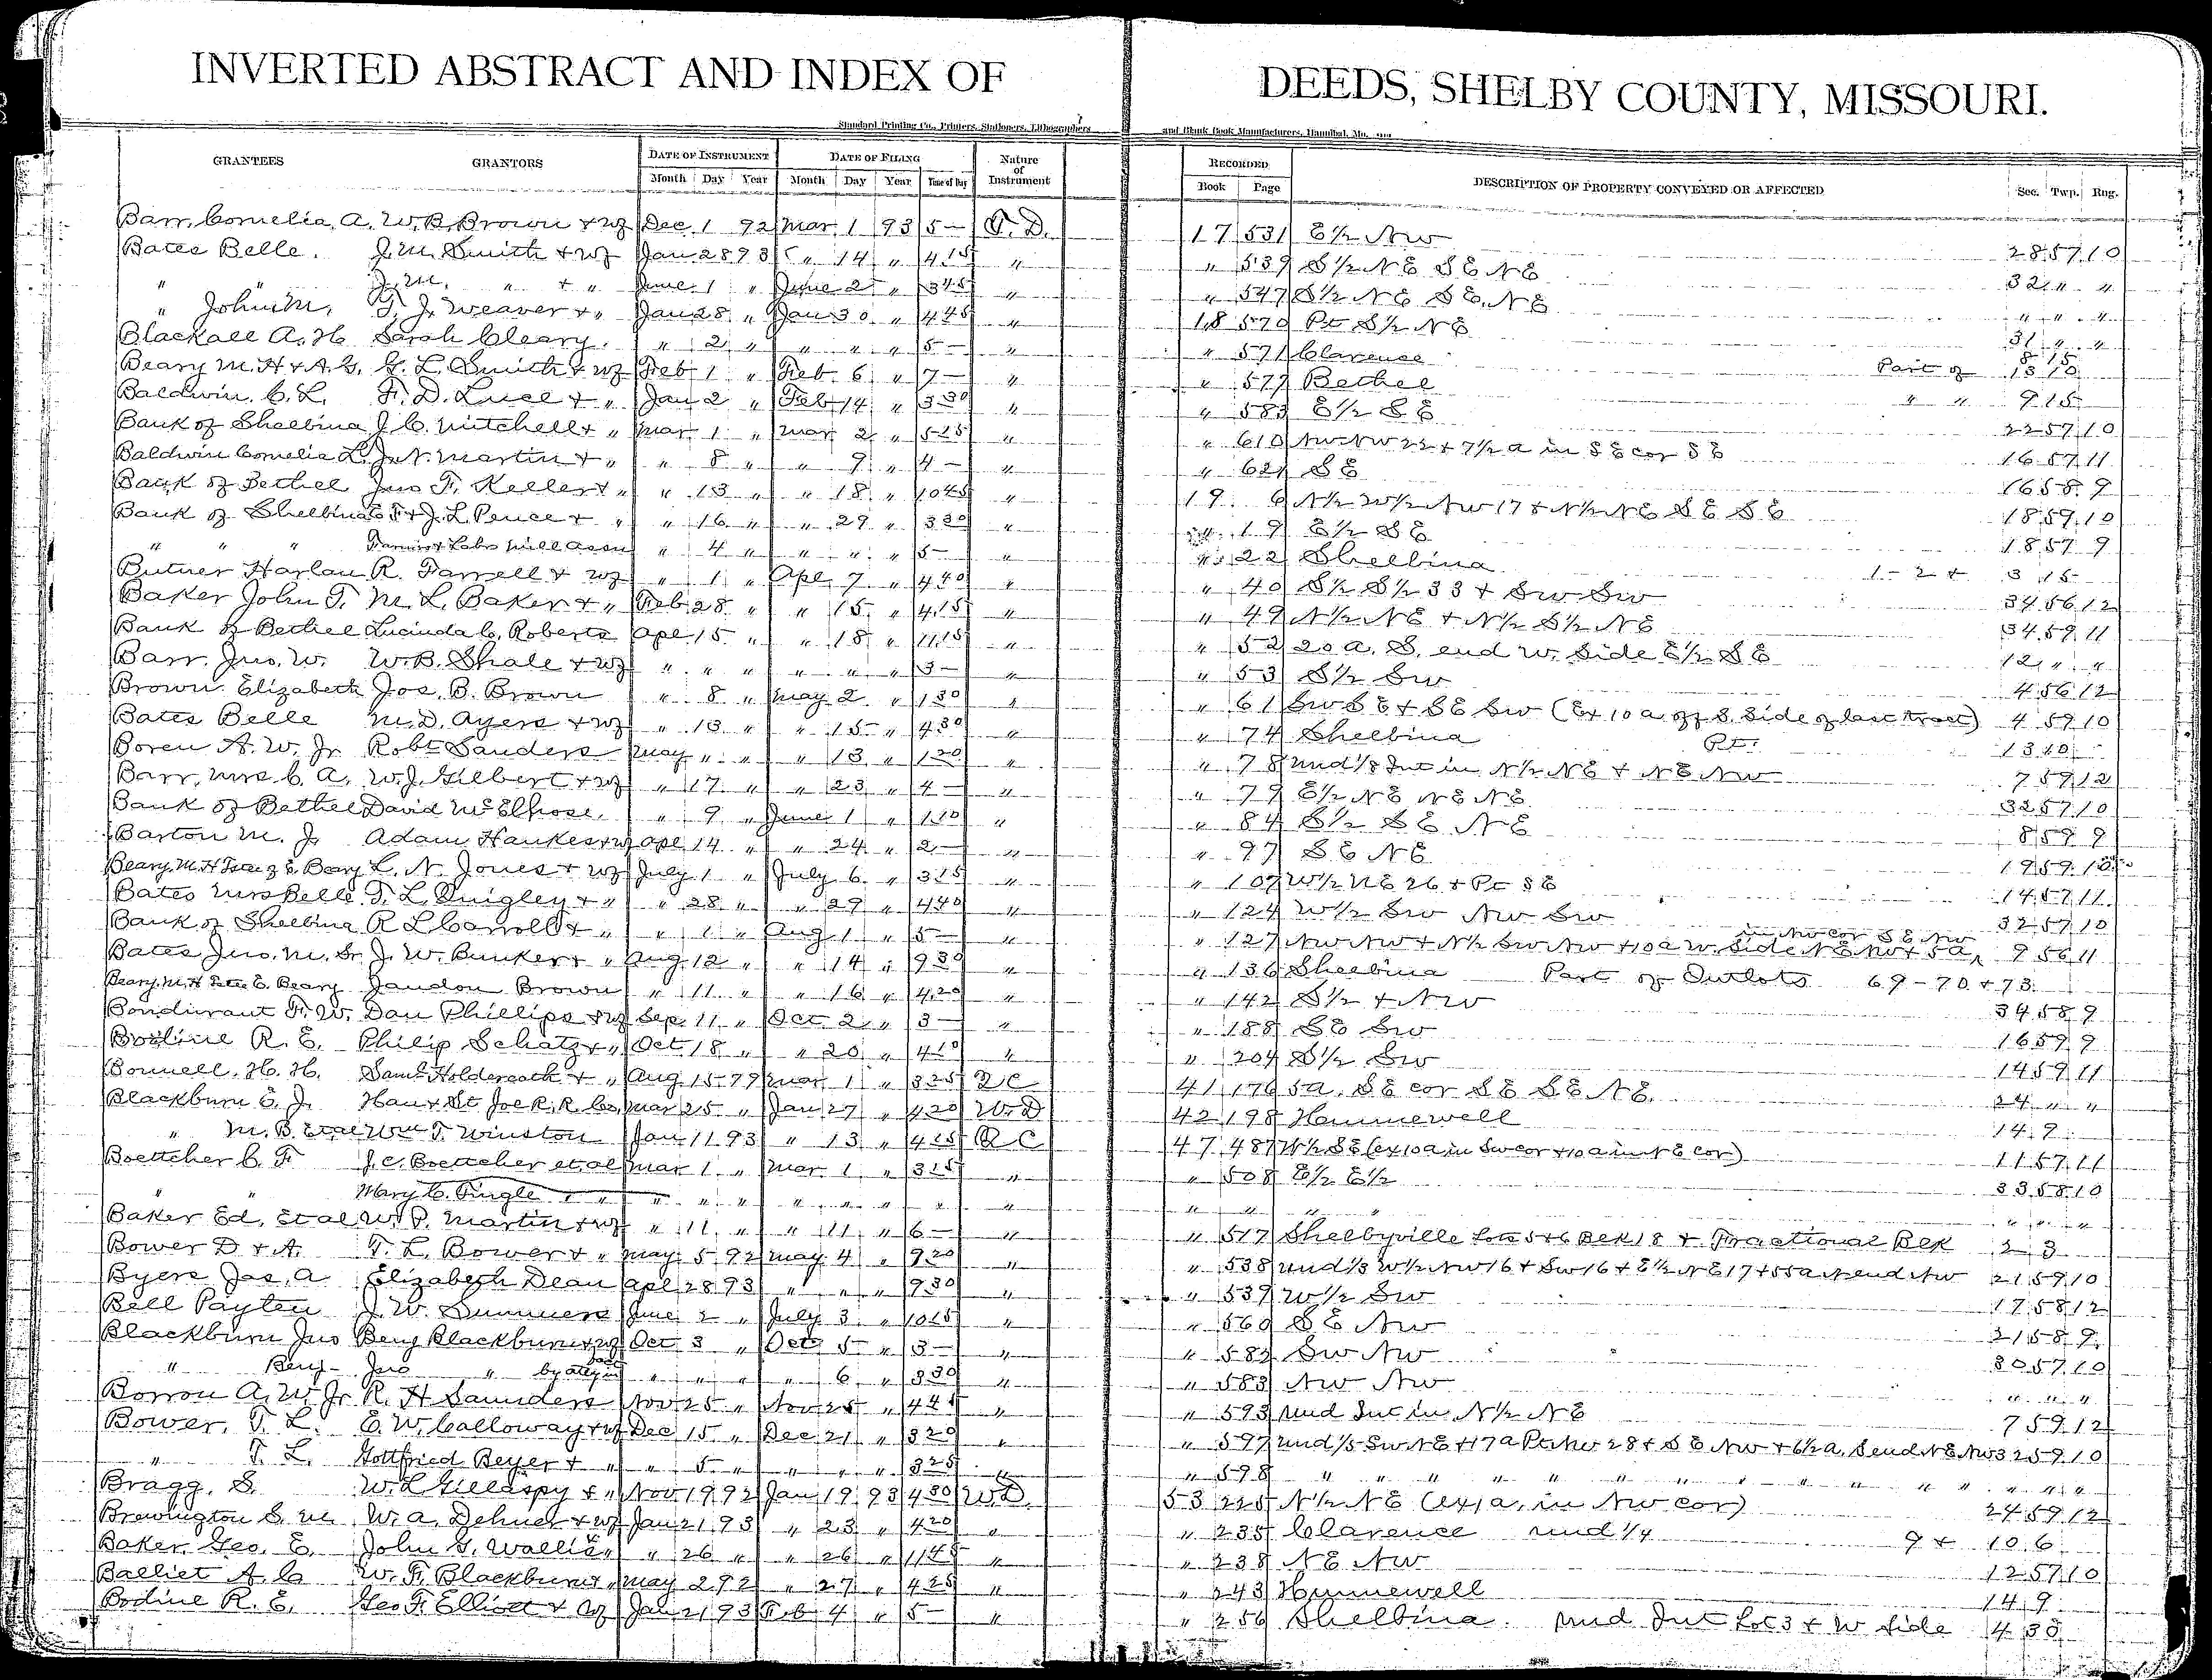 INVERTED ABSTRACT AND INDEX OF DEEDS, SHELBY COUNTY, MISSOURI.
Standard Printing Co., Printers, Stationers, Lithographers and Blank Book Manufacturers, Hannibal, Mo.
GRANTEES GRANTORS DATE OF INSTRUMENT DATE OF FILING Nature of Instrument RECORDED DESCRIPTION OF PROPERTY CONVEYED OR AFFECTED Sec. Twp. Rng.
Month Day Year Month Day Year Time of Day Book Page
Barr, Cornelia, A. W. B. Brown & wf Dec 1 92 Mar 1 93 5- T. D. 17 531 E½ NW 28 57 10
Bates Belle. J. M. Smith & wf Jan 28 93 " 14 " 4 15 " " 539 S½ NE SE NE 32 " "
" " J. M. " & " June 1 " June 2 " 3 45 " " 547 S½ NE SE NE " " "
" John M. T. J. Weaver & " Jan 28 " Jan 30 " 4 45 " 18 570 Pt S½ NE 31 " "
Blackall A. H. Sarah Cleary. " 2 " " " " 5- " " 571 Clarence 8 15
Beary M. H & A. G. G. L. Smith & wf Feb 1 " Feb 6 " 7- " " 577 Bethel Part of 13 10
Baldwin, C. L. F. D. Luce & " Jan 2 " Feb 14 " 3 30 " " 583 E½ SE " " 9 15
Bank of Shelbina J. C. Mitchell & " Mar 1 " Mar 2 " 5 25 " " 610 NW NW 22 & 7½ a in SE cor SE 22 57 10
Baldwin Cornelia L. Jr N. Martin & " " 8 " " 9 " 4- " " 621 SE 16 57 11
Bank of Bethel Jno F. Keller & " " 13 " " 18 " 10 45 " 19 6 N½ W½ NW 17 & N½ NE SE SE 16 58 9
Bank of Shelbina E T & J. L. Pence & " " 16 " " 29 " 3 30 " " 19 E½ SE 18 59 10
" " " Farmers & Labs Mill Assn " 4 " " " " 5- " " 22 Shelbina 18 57 9
Butner Harlan R. Farrell & wf " 1 " Apl 7 " 4 40 " " 40 S½ S½ 33 & SW SW 1-2 & 3 15
Baker John T. M. L. Baker & " Feb 28 " " 15 " 4 15 " " 49 N½ NE & N½ S½ NE 34 56 12
Bank of Bethel Lucinda C. Roberts Apl 15 " " 18 " 11 15 " " 52 20 a. S. end W. Side E½ SE 34 59 11
Barr. Jno. W. W. B. Shale & wf " " " " " " 3- " " 53 S½ SW 12 " "
Brown Elizabeth Jos. B. Brown " 8 " May 2 " 1 30 " " 61 SW SE & SE SW (Ex 10 a off S. Side of last tract) 4 56 12
Bates Belle M. D. Ayers & wf " 13 " " 15 " 4 30 " " 74 Shelbina Pt. 4 59 10
Boren A. W. Jr Robt Sanders May " " " 13 " 1 20 " " 78 und 1/8 Int in N½ NE & NE NW 13 40
Barr, Mrs C. A. W. J. Gilbert & wf " 17 " " 23 " 4- " " 79 E½ NE NE NE 7 59 12
Bank of Bethel David McElhose. " 9 " June 1 " 1 10 " " 84 S½ SE NE 32 57 10
Barton M. J. Adam Hankes & wf Apl 14 " " 24 " 2- " " 97 SE NE 8 59 9
Beary. M. H Tstee of E. Beary L. N. Jones & wf July 1 " July 6 " 3 15 " " 107 W½ NE 26 & Pt SE 19 59 10
Bates Mrs Belle T. L. Quigley & " " 28 " " 29 " 4 40 " " 124 W½ SW NW SW 14 57 11
Bank of Shelbina R L Carroll & " " 1 " Aug 1 " 5- " " 127 NW NW & N½ SW NW & 10 a W. Side NE NW & 5 a in NW cor SE NW 32 57 10
Bates Jno. M. Sr J. W. Bunker & " Aug 12 " " 14 " 9 30 " " 136 Shelbina Part of Outlots 69-70 & 73. 9 56 11
Beary. M. H Tstee E. Beary Jandon Brown " 11 " " 16 " 4 20 " " 142 S½ & NW
Bondurant F. W. Dan Phillips & wf Sep 11 " Oct 2 " 3- " " 188 SE SW 34 58 9
Bodine R. E. Philip Schatz & " Oct 18 " " 20 " 4 10 " " 204 S½ SW 16 59 9
Bonnell. H. H. Saml Holdercroth & " Aug 15 79 Mar 1 " 3 25 QC 41 176 5 a. SE cor SE SE NE. 14 59 11
Blackburn E. J. Han & St. Joe R. R. Co Mar 25 " Jan 27 " 4 20 W. D 42 198 Hunnewell 24 " "
" M. B. Etal Wm T. Winston Jan 11 93 " 13 " 4 15 QC 47 487 W½ SE (ex 10 a in SW cor & 10 a in NE cor) 14 9
Boettcher C. F. J. C. Boettcher et al Mar 1 " Mar 1 " 3 15 " " 508 E½ E½ 11 57 11
" " Mary C. Pingle & " " " " " " " " " " " " " 33 58 10
Baker Ed, Et al W. P. Martin & wf " 11 " " 11 " 6- " " 517 Shelbyville Lots 5 & 6 Blk 18 & Fractional Blk 23
Bower D & A. T. L. Bower & " May 5 92 May 4 " 9 20 " " 538 und 1/3 W½ NW 16 & SW 16 & E½ NE 17 & 55 a N end NW 21 59 10
Byers Jas. A Elizabeth Dean Apl 28 93 " " " 9 30 " " 539 W½ SW 17 58 12
Bell Payten J. W. Summers June 2 " July 3 " 10 15 " " 560 SE NW 21 58 9
Blackburn Jno Benj Blackburn & wf Oct 3 " Oct 5 " 3- " " 582 SW NW 30 57 10
" Benj- Jno " by atty in fact " " " " 6 " 3 30 " " 583 NW NW " " "
Borron A. W. Jr R. H Saunders Nov 25 " Nov 25 " 4 45 " " 593 und Int in N½ NE 7 59 12
Bower, T. L. E. W. Calloway & wf Dec 15 " Dec 21 " 3 20 " " 597 und 1/5 SW NE & 17 a Pt NW 28 & SE NW & 6½ a. S end NE NW 3 25 9 10
" T. L. Gottfried Beyer & " " 5 " " " " 3 25 " " 598 " " " " " "
Bragg, S. W. L Gillaspy & " Nov 19 92 Jan 19 93 4 30 W. D. 53 225 N½ NE (ex 1 a, in NW cor) 24 59 12
Brewington S. M. W. A. Dehner & wf Jan 21 93 " 23 " 4 20 " " 235 Clarence und 1/4 9 & 10 6
Baker, Geo. E. John G. Wallis " " 26 " " 26 " 11 45 " " 238 NE NW 12 57 10
Balliet A. C. W. F. Blackburn & " May 2 92 " 27 " 4 25 " " 243 Hunnewell 14 9
Bodine R. E. Geo F. Elliott & wf Jan 21 93 Feb 4 " 5- " " 256 Shelbina und Int Lot 3 & W side 4 38